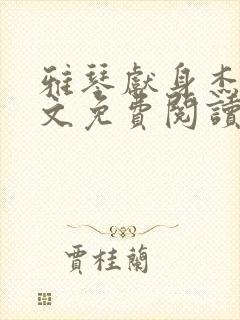 雅琴獻身杰
文免費閱讀
賈桂蘭